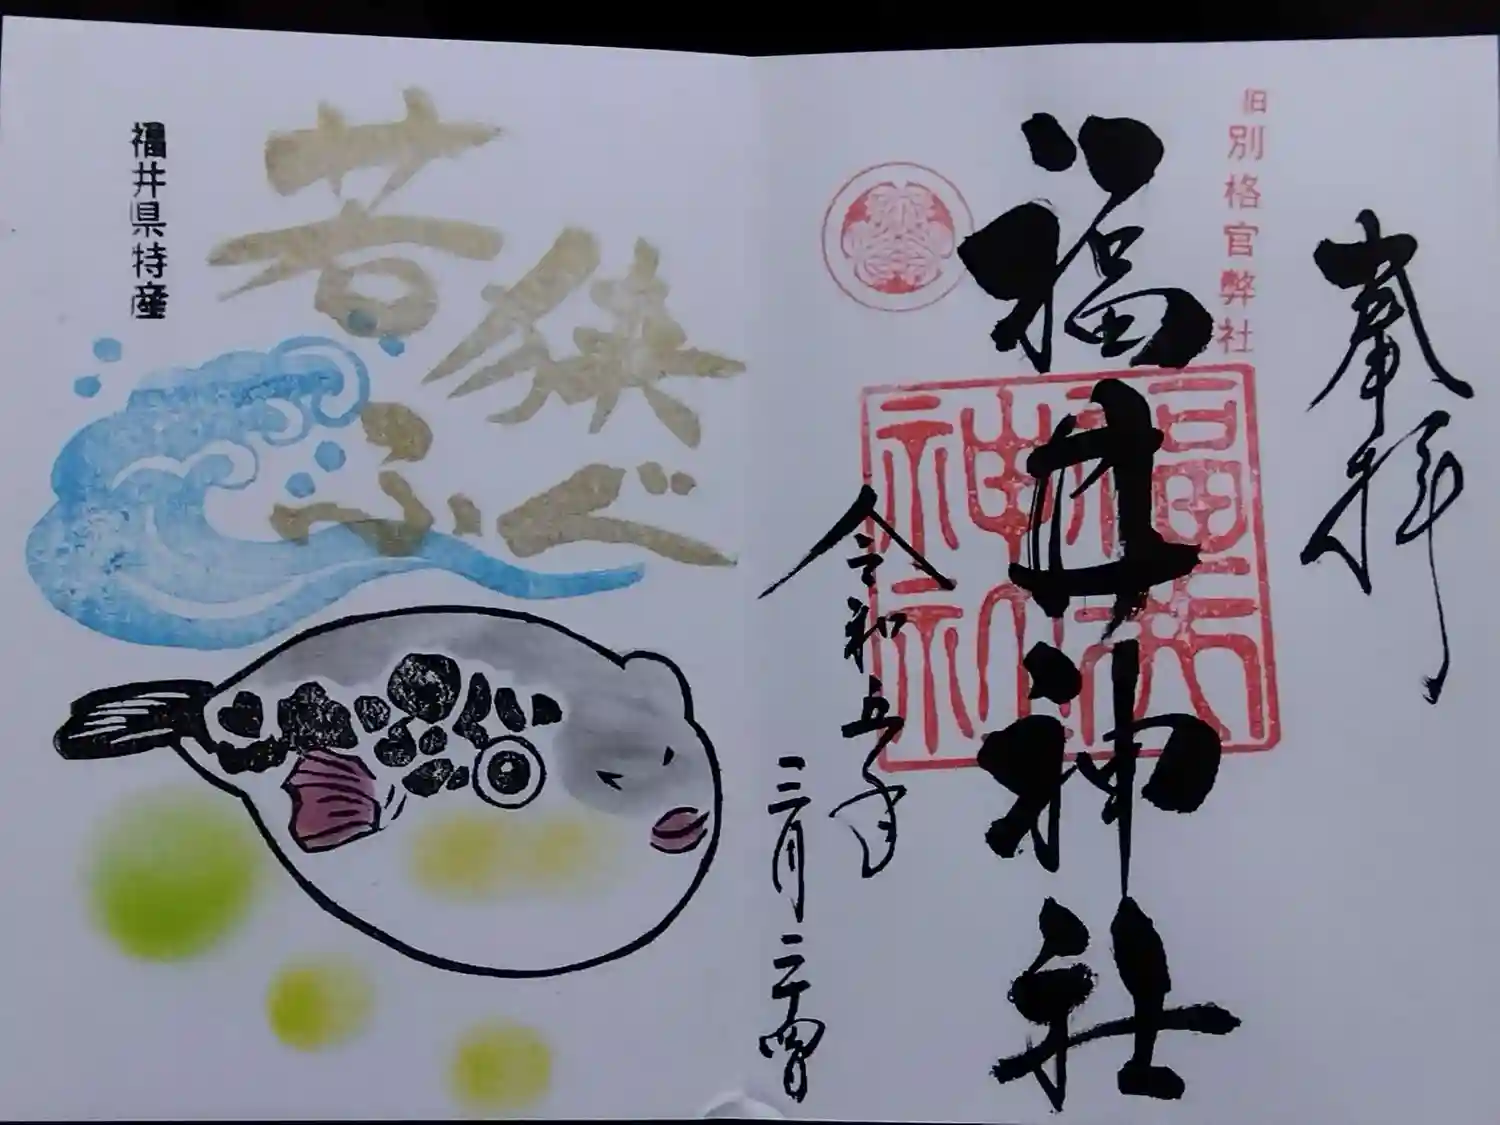 奉拝
旧別格官幣社
福井神社
福井
神社
令和五年
三月二十四日
福井県特産
若狭
ふぐ